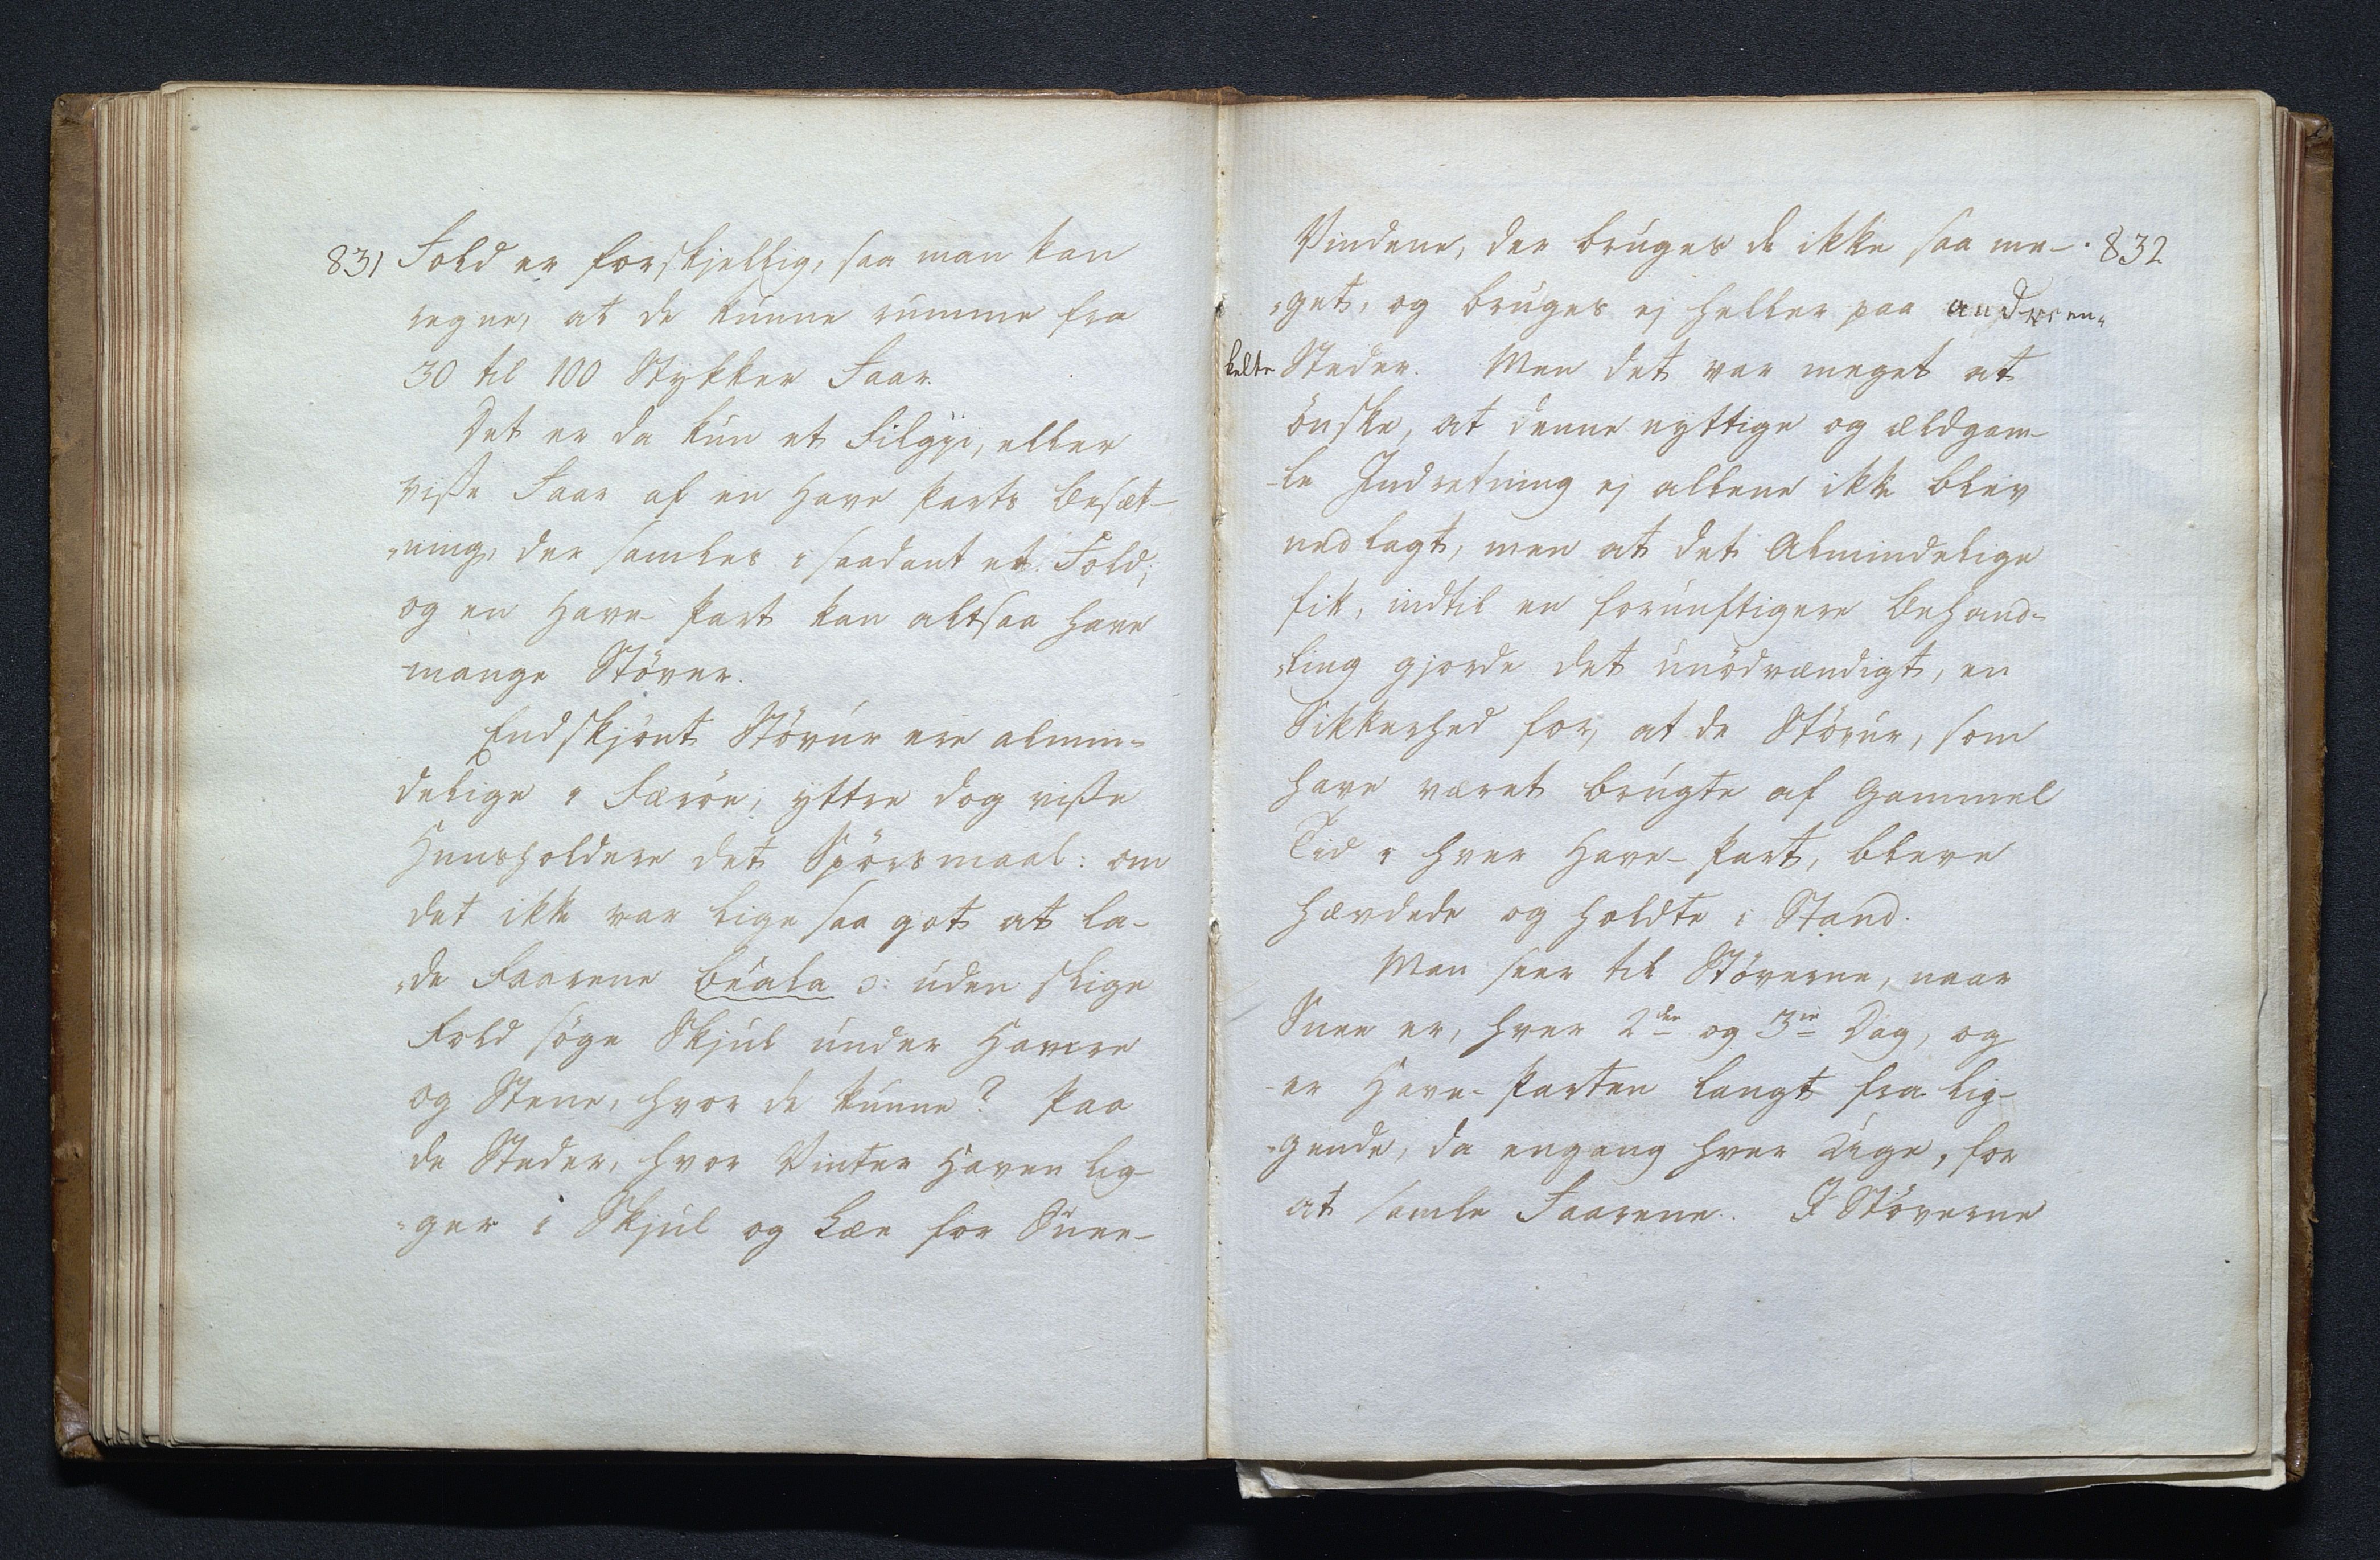 831
Fold er forskjellig, saa man kan
regne, at de kunne rumme fra
30 til 100 Stykker Faar.
Det er da kun et Filgji, eller
visse Faar af en Have Parts Besæt-
„ning, der samles i saadant et Fold;
og en Have-Part kan altsaa have
mange Støver.
Endskjönt Stövur ere almin-
delige i Færöe, yttre dog visse
Huusholdere det Spörsmaal: om
det ikke var lige saa got at la-
„de Faarene buala ɔ: uden slige
Fold söge Skjul under Hamre
og Stene, hvor de kunne? Paa
de Steder, hvor Vinter Haven lig-
„ger i Skjul og Læe for Snee-
832
Vindene, der bruges de ikke saa me-
„get, og bruges ej heller paa andre en„
kelte Steder. Men det var meget at
önske, at denne nyttige og ældgam-
le Indretning ej allene ikke blev
nedlagt, men at det Almindelige
fik, indtil en forunftigere Behand-
„ling gjorde det unödvændigt, en
Sikkerhed for, at de Stövur, som
have været brugte af Gammel
Tid i hver Have-Part, bleve
hævdede og holdte i Stand.
Man seer til Stöverne, naar
Snee er, hver 2den og 3ie Dag, og
er Have-Parten langt fra lig-
„gende, da engang hver Uge, for
at samle Faarene. I Stöverne